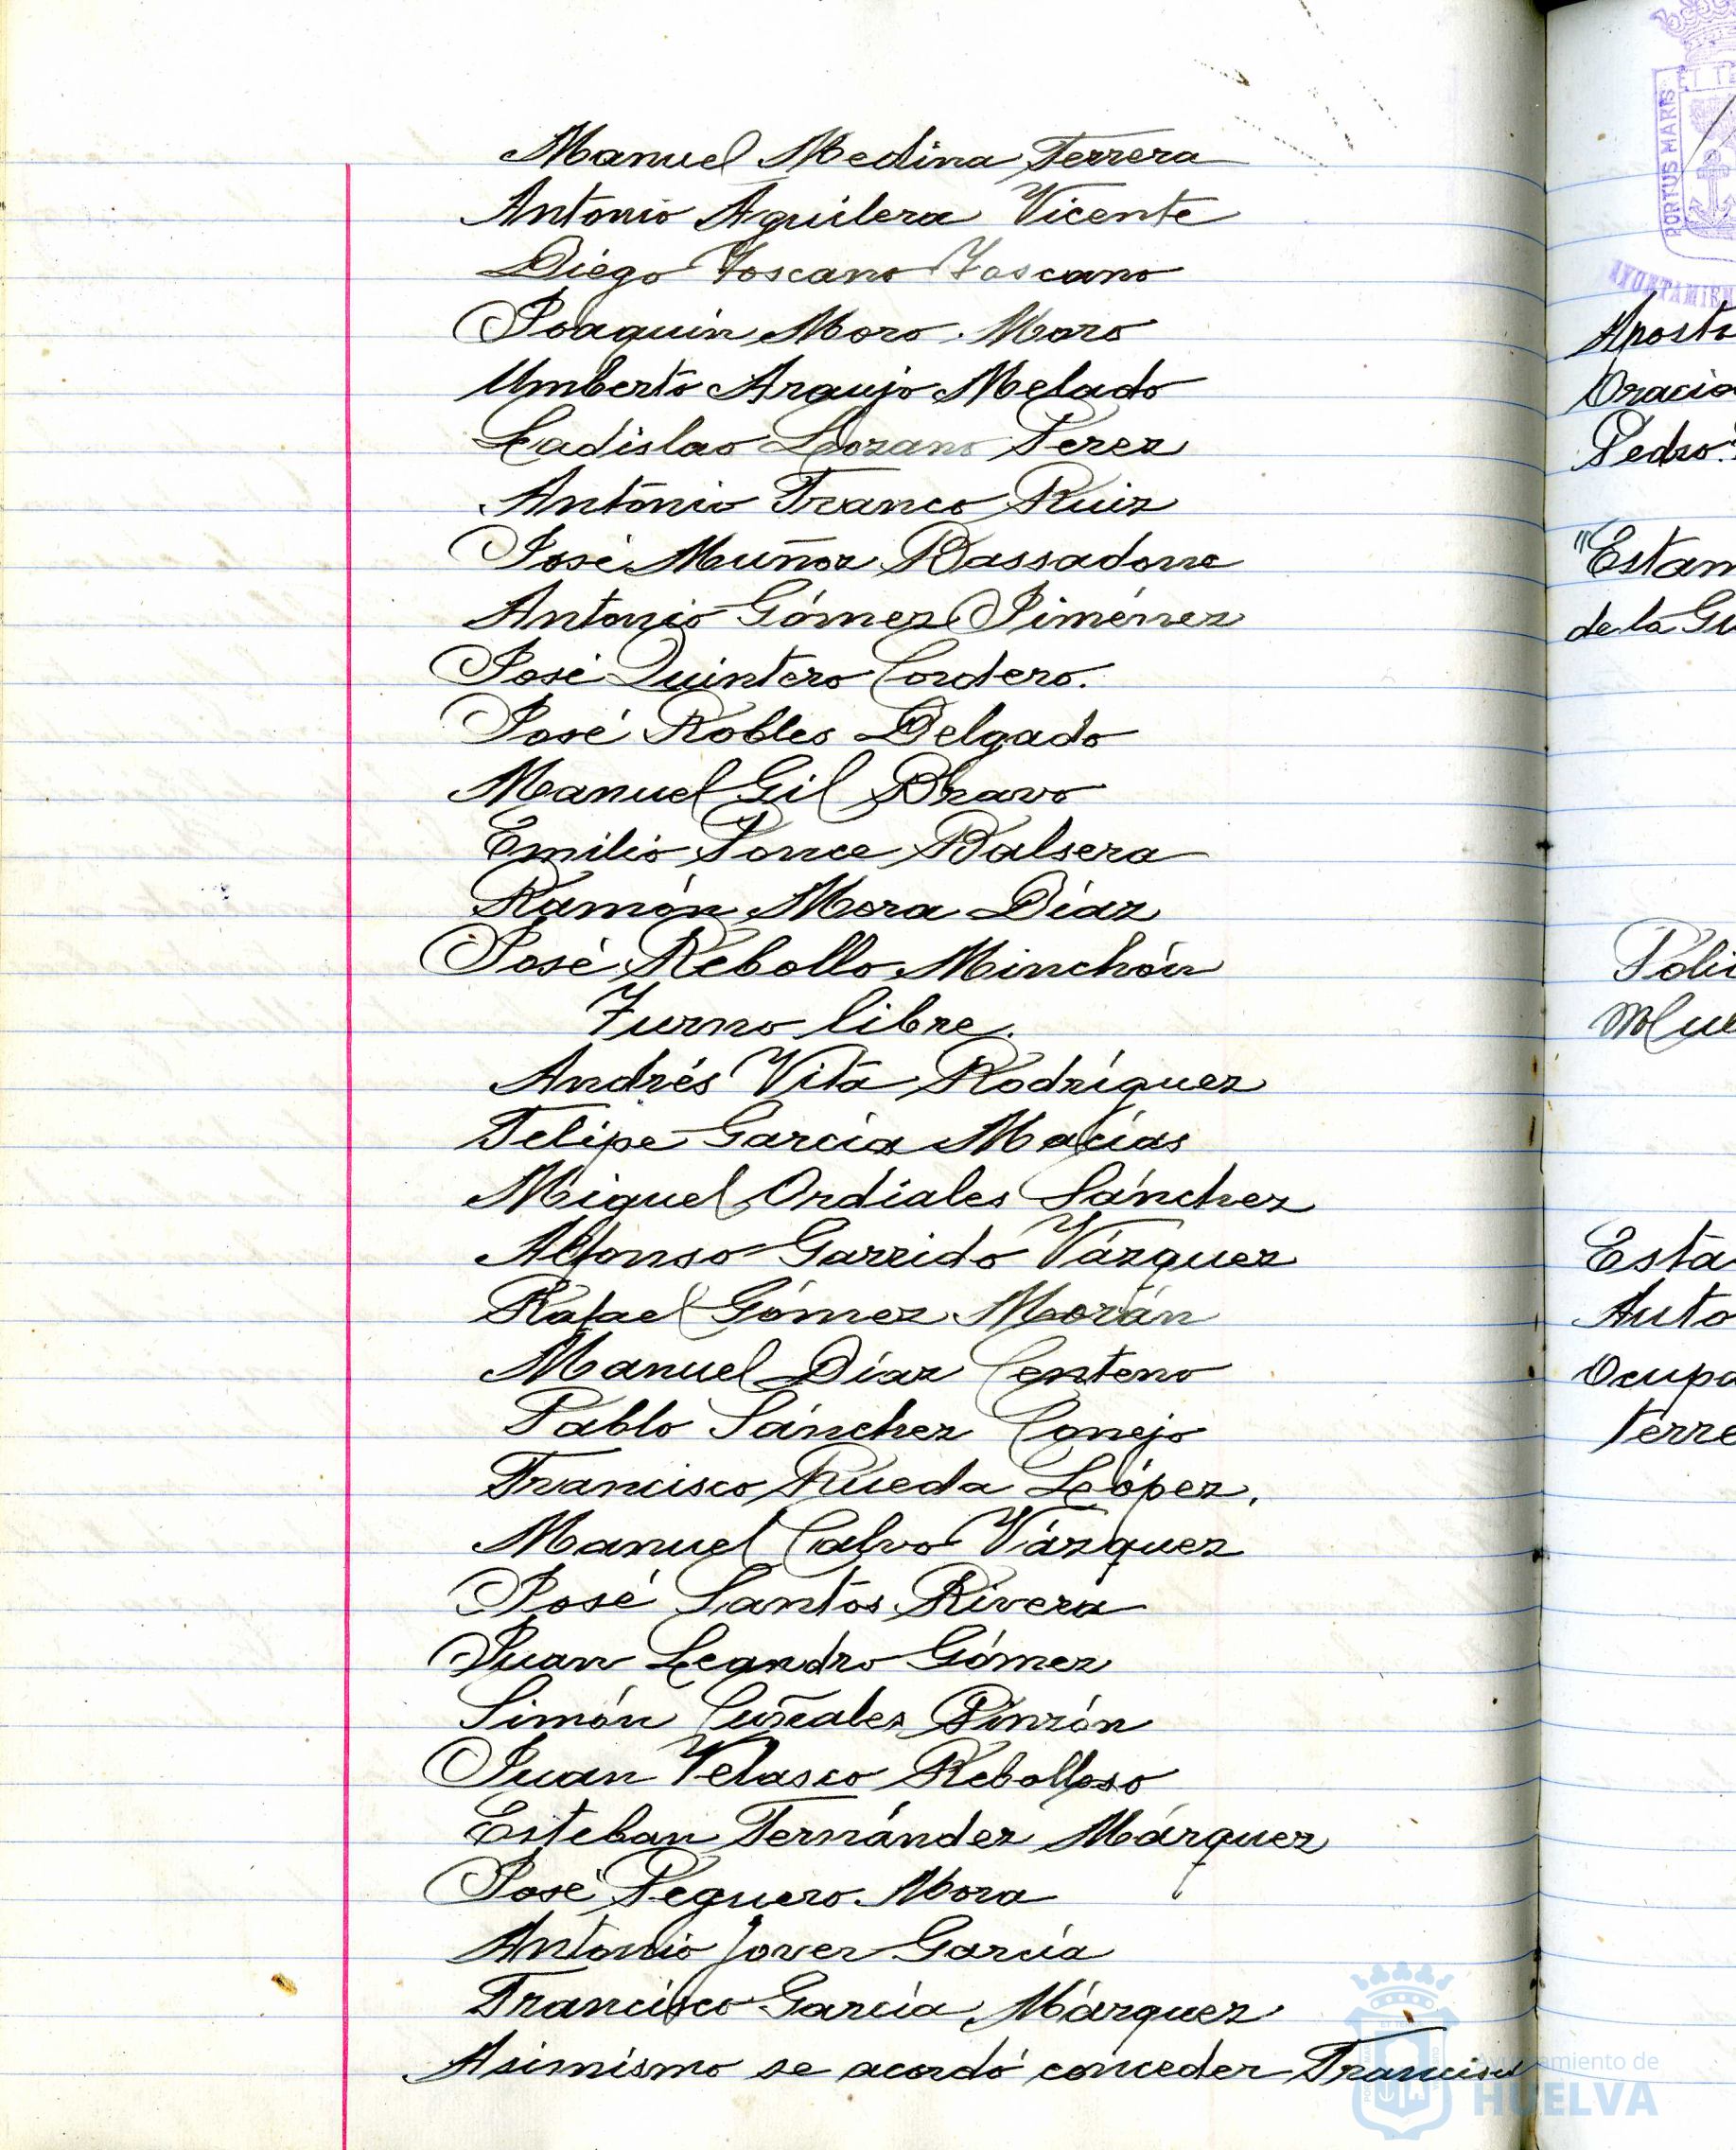 Manuel Medina Ferrera
Antonio Aguilera Vicente
Diego Toscano Toscano
Joaquin Moro Moro
Umberto Araujo Melado
Ladislao Lozano Perez
Antonio Franco Ruiz
José Muñoz Bassadone
Antonio Gómez Jiménez
José Quintero Cordero.
José Robles Delgado
Manuel Gil Bravo
Emilio Ponce Balsera
Ramón Mora Díaz
José Rebollo Minchón
Turno libre.
Andrés Vita Rodríguez
Felipe García Macías
Miguel Ordiales Sánchez
Alfonso Garrido Vázquez
Rafael Gómez Morán
Manuel Díaz Centeno
Pablo Sánchez Conejo
Francisco Rueda López.
Manuel Calvo Vázquez
José Santos Rivera
Juan Leandro Gómez
Simón Pinzón
Juan Velasco Rebolloso
Esteban Fernández Márquez
José Peguero Mora
Antonio Jover García
Francisco García Márquez
Asimismo se acordó conceder Francisco
PORTUS MARIS
Pedro
"Estam
de la Gu
Esta
Auto
Ocupa
terre
Ayuntamiento de
HUELVA